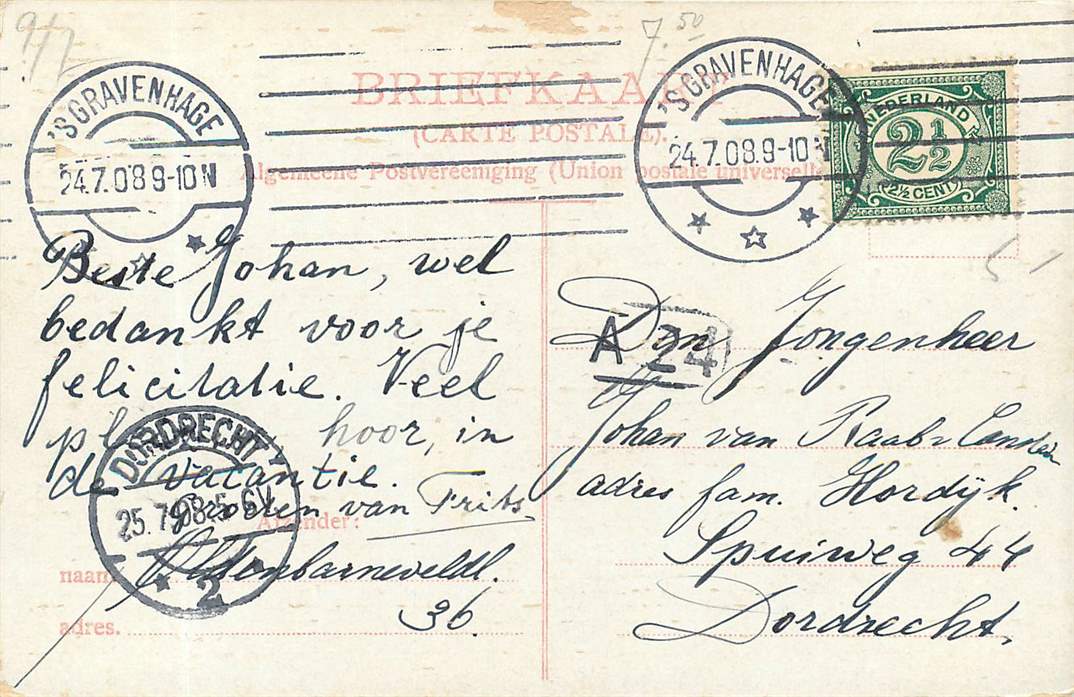 9/7
7.50
BRIEFKAART
(CARTE POSTALE).
Algemeene Postvereeniging (Union postale universelle)
'S GRAVENHAGE
24.7.08 9-10 N
'S GRAVENHAGE
24.7.08 9-10 N
NEDERLAND
2½
2½ CENT
5
Beste Johan, wel
bedankt voor je
felicitatie. Veel
hoor, in
de vacantie.
Groeten van Frits
Afzender:
naam
Oldenbarneveldl.
adres.
36.
DORDRECHT
25.7.08 5-6V
2
A 24
Den Jongenheer
Johan van Raab v Canstein
adres fam. Hordijk.
Spuiweg 44
Dordrecht.